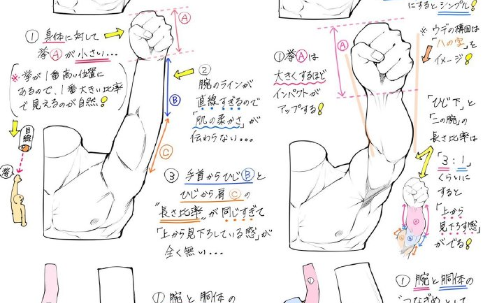 ① 身体に対して
拳Ⓐが
小さい…
※ 拳が1番高い位置に
あるので、1番大きい比率
で見えるのが自然!
目線
拳
Ⓐ
Ⓑ
Ⓒ
②
腕のラインが
直線すぎるので
「肌の柔かさ」が
伝わらない…
③ 手首からひじⒷと
ひじから肩Ⓒの
"長さ比率"が同じすぎて
「上から見下ろしている感」が
全く無い…
① 腕と胴体の
にするとシンプル!
※ ウデの構図は
"ハの字"を
イメージ!
① 拳Ⓐは
大きくするほど
インパクトが
アップする!
Ⓐ
「ひじ下」と
「二の腕」の
長さ比率は
「3:1」
くらいに
すると
「上から
見下ろす感」
がでる!
① 腕と胴体の
"つなぎめ"として